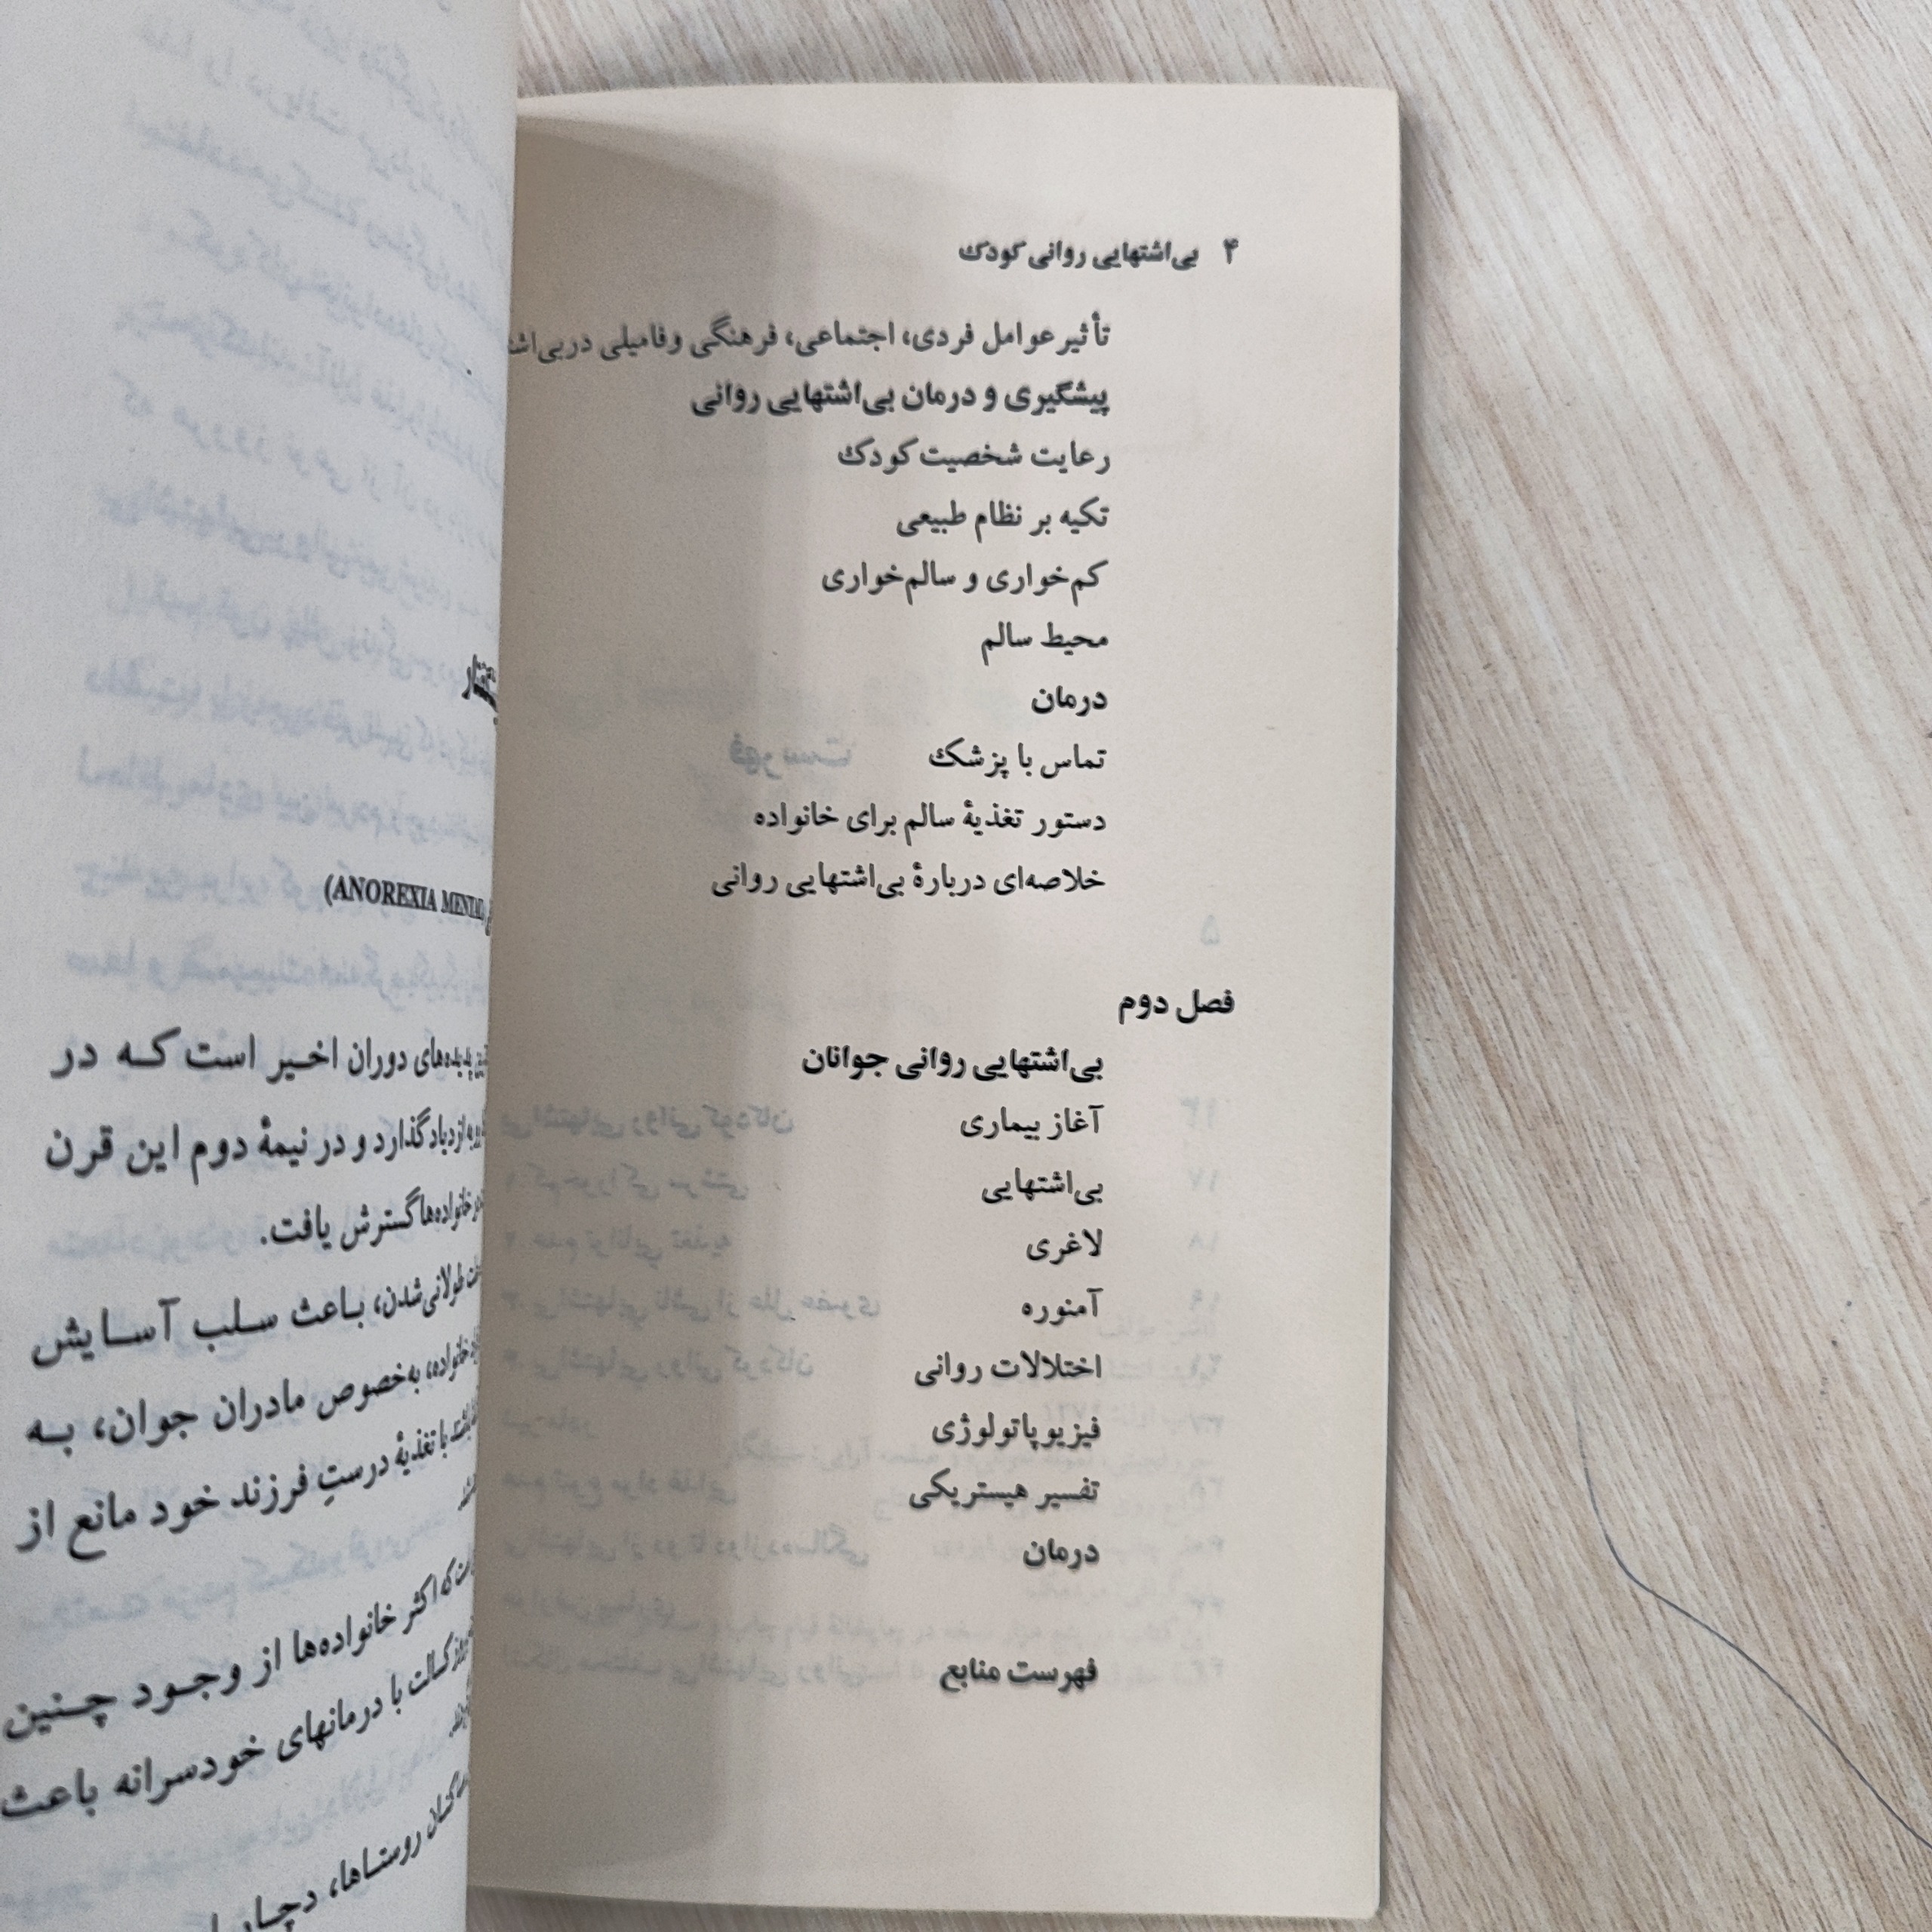 ۴ بی‌اشتهایی روانی کودک
تأثیر عوامل فردی، اجتماعی، فرهنگی و فامیلی در
پیشگیری و درمان بی‌اشتهایی روانی
رعایت شخصیت کودک
تکیه بر نظام طبیعی
کم‌خواری و سالم‌خواری
محیط سالم
درمان
تماس با پزشک
دستور تغذیهٔ سالم برای خانواده
خلاصه‌ای دربارهٔ بی‌اشتهایی روانی
فصل دوم
بی‌اشتهایی روانی جوانان
آغاز بیماری
بی‌اشتهایی
لاغری
آمنوره
اختلالات روانی
فیزیوپاتولوژی
تفسیر هیستریکی
درمان
فهرست منابع
(ANOREXIA
پدیده‌های دوران اخیر است که در
ازدیاد گذارد و در نیمهٔ دوم این قرن
خانواده‌ها گسترش یافت.
طولانی‌شدن، باعث سلب آسایش
خانواده، به‌خصوص مادران جوان، به
با تغذیهٔ درستِ فرزند خود مانع از
که اکثر خانواده‌ها از وجود چنین
کسالت با درمانهای خودسرانه باعث
روستاها، دچار